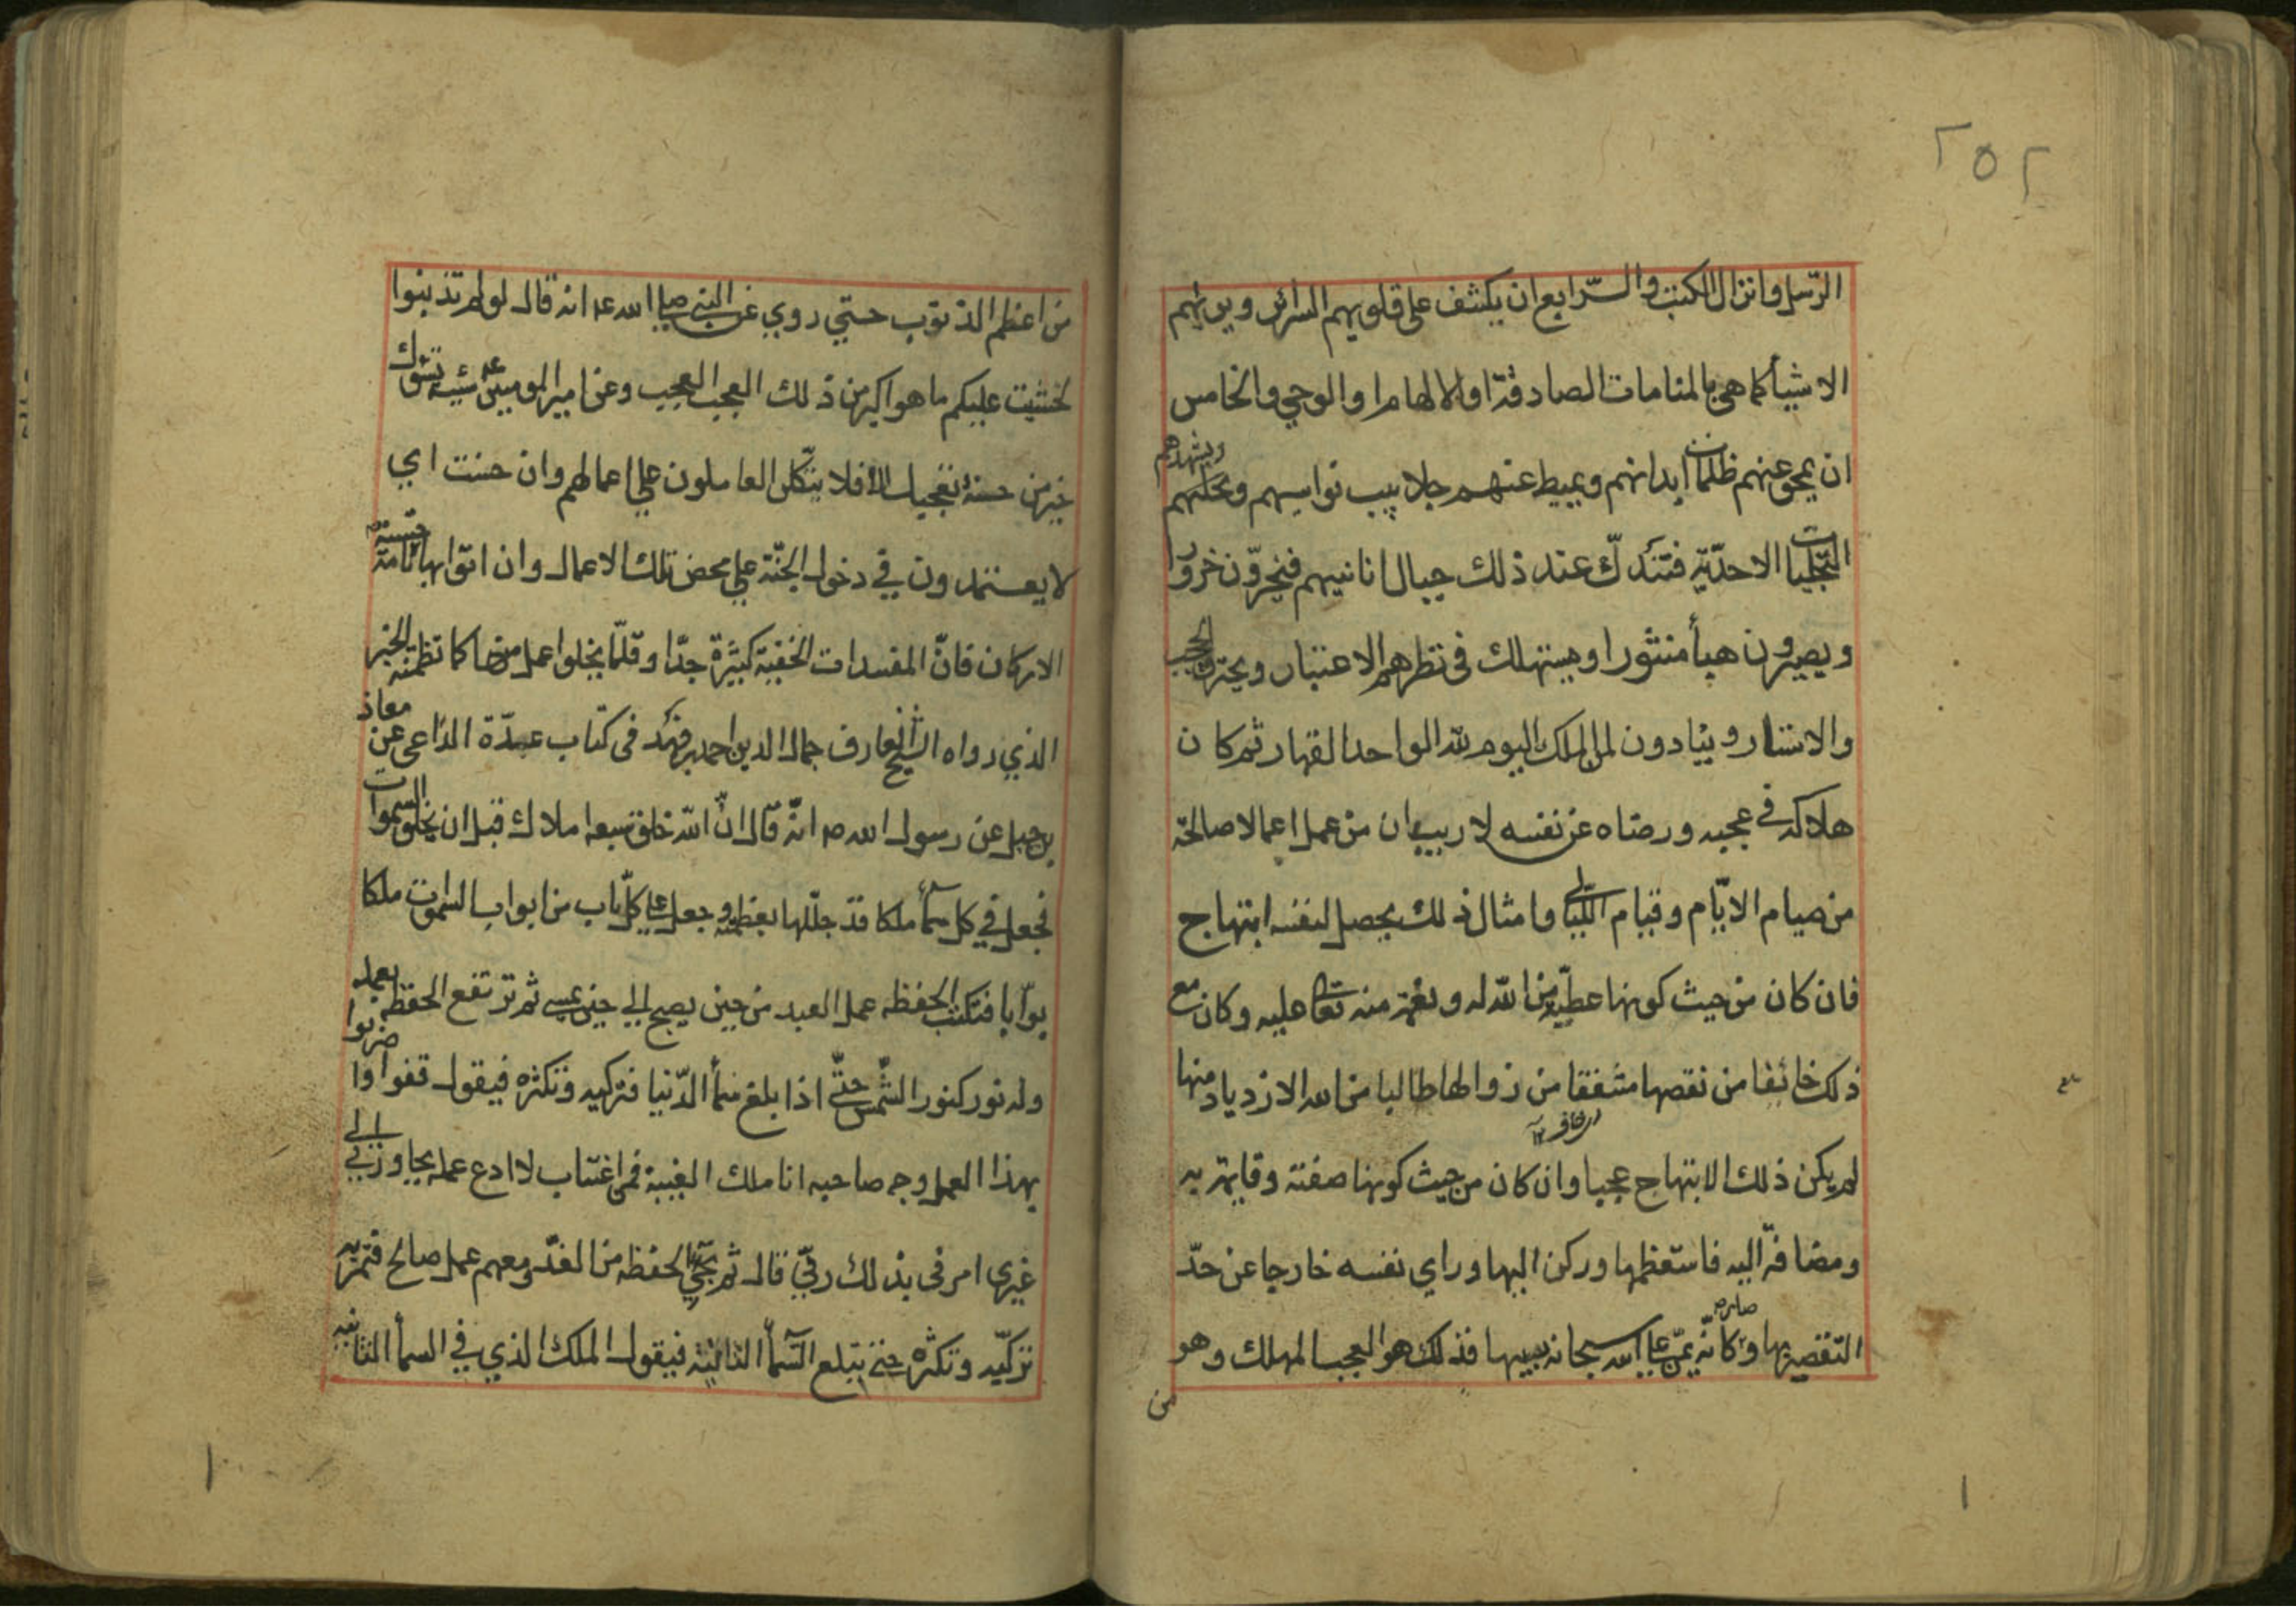 ٢٥٢
الرّسل وانزال الكتب والسّرابع ان يكشف على قلوبهم السرائر ويريهم
الاشيأ كما هى بالمنامات الصادقة او الالهام او الوحي والخامس
ان يمحو عنهم ظلمات ابدانهم ويميط عنهم جلابيب نواسيهم ويشهدهم
التجليات الاحديّة فتندكّ عند ذلك جبال انانيهم فيخرّون خرورا
ويصيرون هبأ منثورا ويستهلك فى نظرهم الاعتبار ويحترق الحجب
والاستار وينادون لمن الملك اليوم لله الواحد القهار ثم كان
هلاكه في عجبه ورضاه عن نفسه لا ريب ان من عمل اعمالا صالحة
من صيام الايّام وقيام اللّيالي وامثال ذلك يحصل لنفسه ابتهاج
فان كان من حيث كونها عطيّة من الله له ونعمة منه تعالى عليه وكان مع
ذلك خائفا من نقصها مشفقا من زوالها طالبا من الله الازدياد منها
لم يكن ذلك الابتهاج عجبا وان كان من حيث كونها صفته وقايمة به
ومضافة اليه فاستعظمها وركن اليها وراي نفسه خارجا عن حدّ
التقصير بها وصار كانّه يمنّ على الله سبحانه بسببها فذلك هو العجب المهلك وهو
من
من اعظم الذنوب حتي روي عن النبي صلي الله عه انه قال لو لم تذنبوا
لخشيت عليكم ما هو اكبر من ذلك العجب العجب وعن امير المومنين عه سيئة تسؤك
خير من حسنة تعجبك فلا يتّكل العاملون على اعمالهم وان حسنت اي
لا يعتمدون في دخول الجنّة علي محض تلك الاعمال وان اتوا بها تامة
الاركان فانّ المفسدات الخفية كثيرة جدّا وقلّما يخلوا عمل منها كما تظمنه الخبر
الذي رواه الشيخ العارف جمال الدين احمد بن فهد فى كتاب عدّة الداعى عن معاذ
بن جبل عن رسول الله ص انّه قال انّ الله خلق سبعة املاك قبل ان يخلق السموات
فجعل في كل سمأ ملكا قد جلّلها بعظمته وجعل على كلّ باب من ابواب السموت ملكا
بوّابا فتكتب الحفظه عمل العبد من حين يصبح الي حين يمسي ثم ترتفع الحفظه بعمله
وله نور كنور الشّمس حتّي اذا بلغ سمأ الدّنيا فتزكيه وتكثره فيقول قفوا واضربوا
بهذا العمل وجه صاحبه انا ملك الغيبة فمن اغتاب لا ادع عمله يجاوزني الي
غيرى امرنى بذلك ربّي قال ثم تجيّ الحفظه من الغدّ ومعهم عمل صالح فتمرّ به
تزكّيه وتكثره حتي يتبلع السّمأ الثانية فيقول الملك الذي في السمأ الثانية